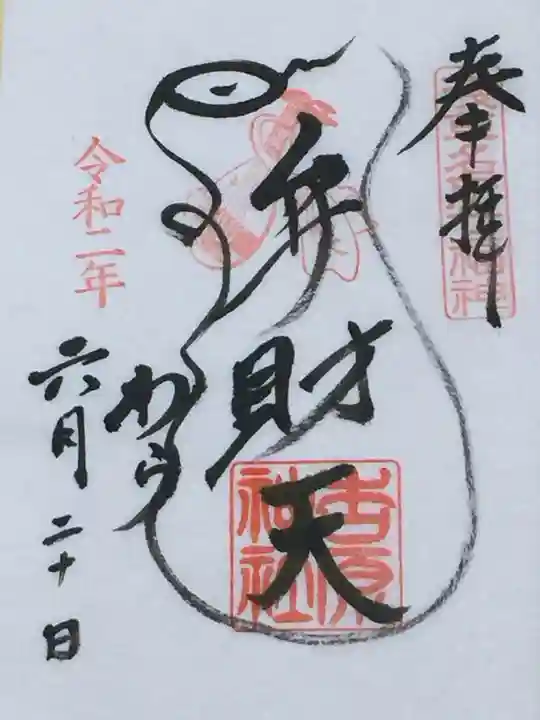 奉拝
弁財天
吉原神社
令和二年
六月二十日